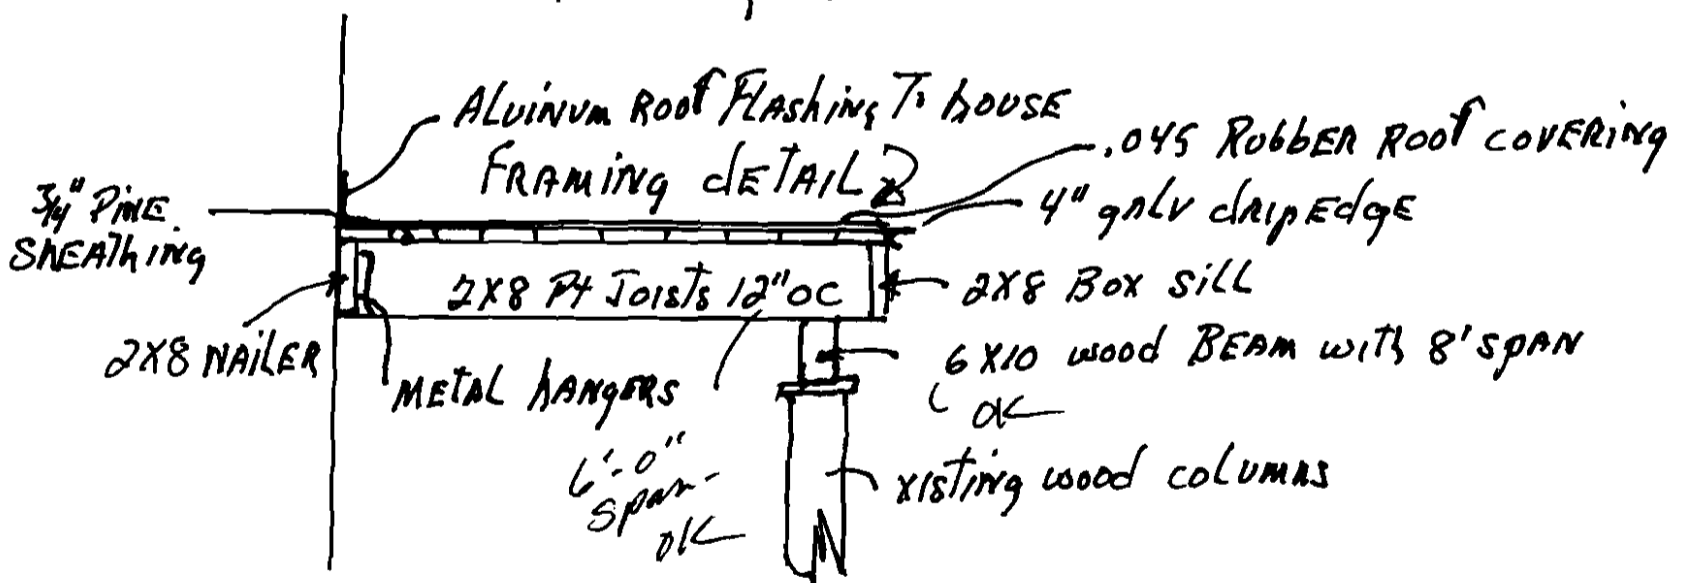 ALUINUM ROOF FLASHING TO HOUSE
FRAMING DETAIL 2
.045 RUBBER ROOF COVERING
4" GALV DRIP EDGE
3/4" PINE
SHEATHING
2X8 PT JOISTS 12" OC
2X8 BOX SILL
2X8 NAILER
METAL HANGERS
6X10 WOOD BEAM WITH 8' SPAN
OK
6'-0"
Span-
OK
XISTING WOOD COLUMNS